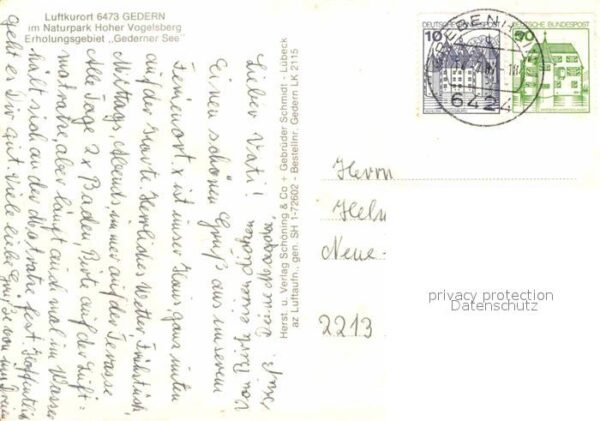 Luftkurort 6473 GEDERN
im Naturpark Hoher Vogelsberg
Erholungsgebiet „Gederner See"
Lieber Vati!
Einen schönen Gruß aus unserem
Ferienort. x ist unser Haus ganz unten
auf der Karte. Herrliches Wetter, Frühstück,
Mittags, Abends, immer auf der Terasse
Alle Tage 2x Baden, Birte auf der Luft=
matratze, aber längst auch mal im Wasser
hält sich an der Matratze fest. Hoffentlich
geht es Dir gut. Viele liebe Grüße von uns Drein
Deine Magda,
Von Birte einen dicken
Herst. u. Verlag Schöning & Co + Gebrüder Schmidt - Lübeck
az Luftaufn., gen. SH 1-72602 - Bestellnr. Gedern LK 2115
10 DEUTSCHE BUNDESPOST
50 DEUTSCHE BUNDESPOST
6424
Herrn
Helm
Neue
2213
privacy protection
Datenschutz